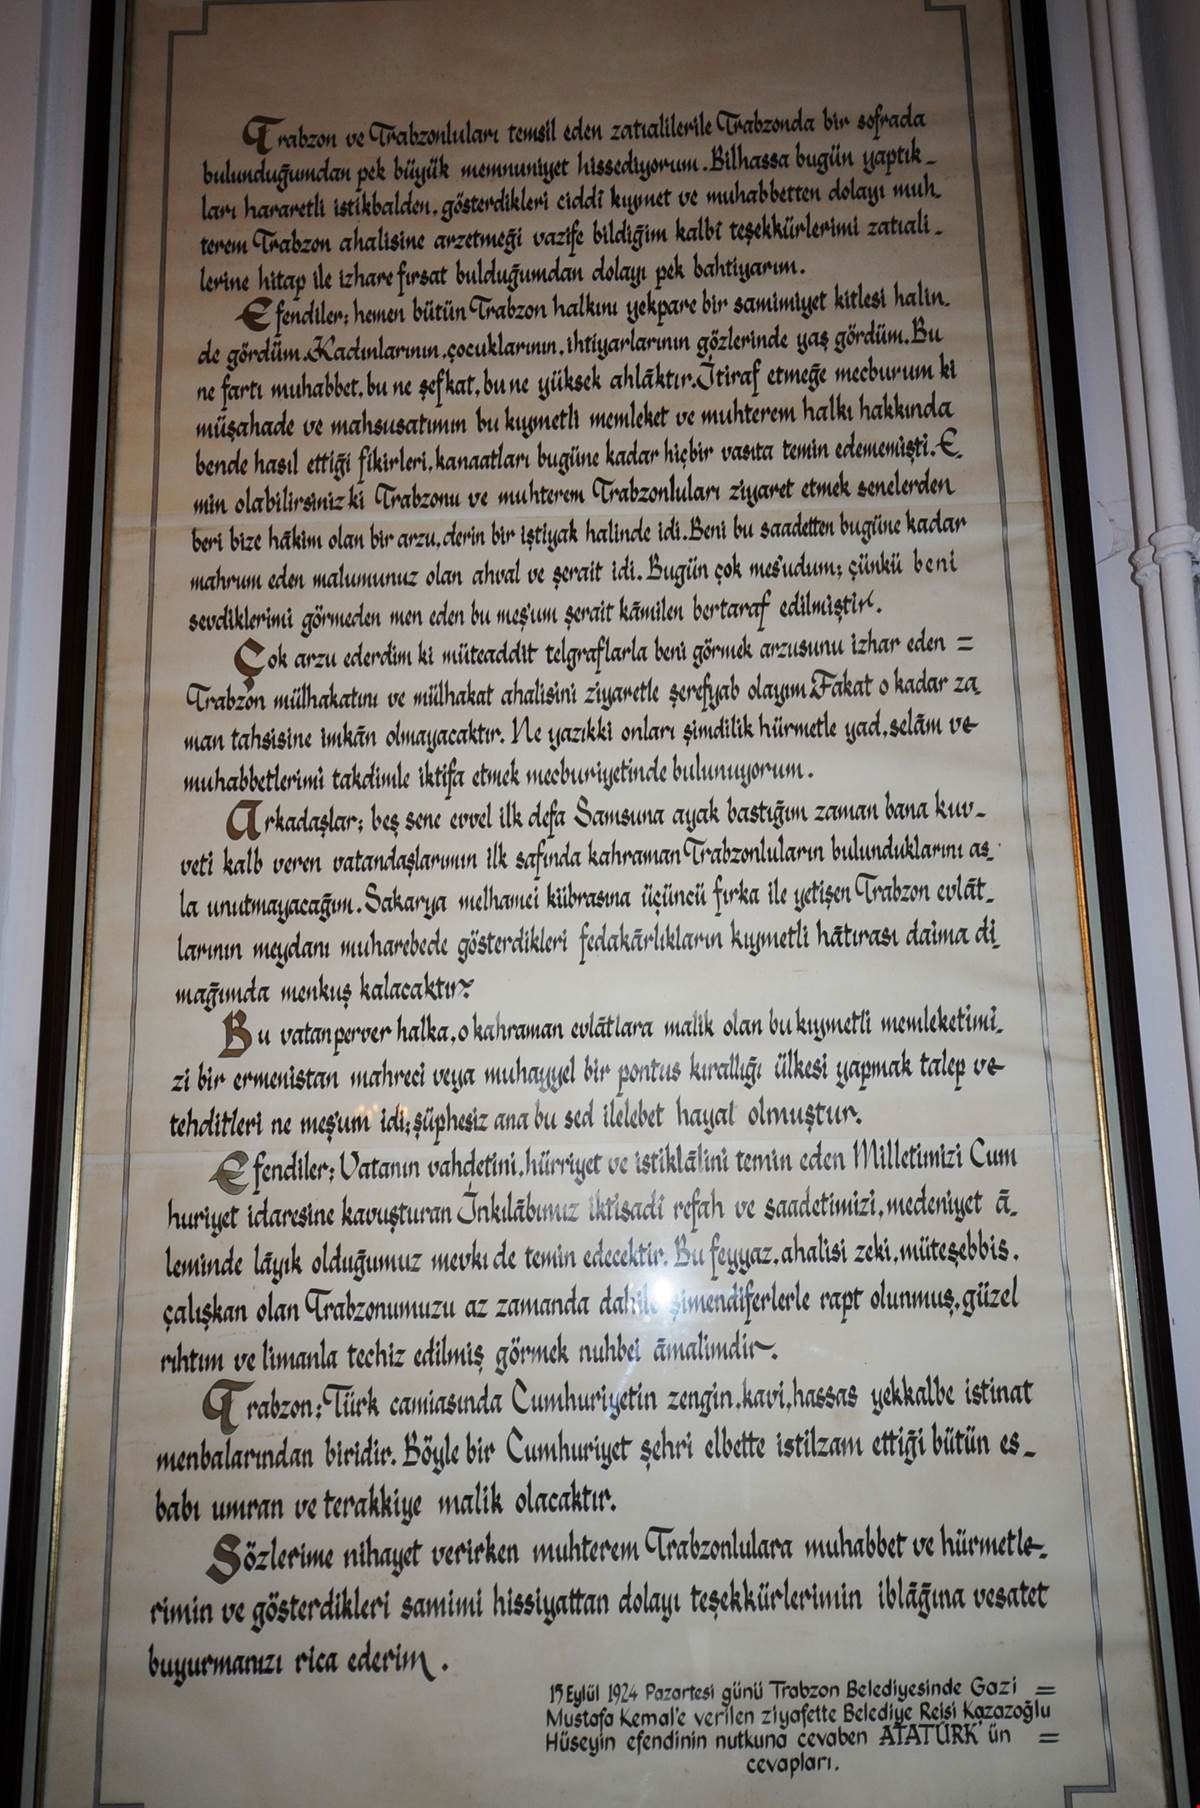 Trabzon ve Trabzonluları temsil eden zatıalilerile Trabzonda bir sofrada
bulunduğumdan pek büyük memnuniyet hissediyorum. Bilhassa bugün yaptık-
ları hararetli istikbalden, gösterdikleri ciddî kıymet ve muhabbetten dolayı muh-
terem Trabzon ahalisine arzetmeği vazife bildiğim kalbî teşekkürlerimi zatıali-
lerine hitap ile izhare fırsat bulduğumdan dolayı pek bahtiyarım.
Efendiler; hemen bütün Trabzon halkını yekpare bir samimiyet kitlesi halin-
de gördüm. Kadınlarının, çocuklarının, ihtiyarlarının gözlerinde yaş gördüm. Bu
ne fartı muhabbet, bu ne şefkat, bu ne yüksek ahlâktır. İtiraf etmeğe mecburum ki
müşahade ve mahsusatımın bu kıymetli memleket ve muhterem halkı hakkında
bende hasıl ettiği fikirleri, kanaatları bugüne kadar hiçbir vasıta temin edememişti. E-
min olabilirsiniz ki Trabzonu ve muhterem Trabzonluları ziyaret etmek senelerden
beri bize hâkim olan bir arzu, derin bir iştiyak halinde idi. Beni bu saadetten bugüne kadar
mahrum eden malumunuz olan ahval ve şerait idi. Bugün çok mes'udum; çünkü beni
sevdiklerimi görmeden men eden bu meş'um şerait kâmilen bertaraf edilmiştir.
Çok arzu ederdim ki müteaddit telgraflarla beni görmek arzusunu izhar eden =
Trabzon mülhakatını ve mülhakat ahalisini ziyaretle şerefyab olayım. Fakat o kadar za-
man tahsisine imkân olmayacaktır. Ne yazıkki onları şimdilik hürmetle yad, selâm ve
muhabbetlerimi takdimle iktifa etmek mecburiyetinde bulunuyorum.
Arkadaşlar; beş sene evvel ilk defa Samsuna ayak bastığım zaman bana kuv-
veti kalb veren vatandaşlarımın ilk safında kahraman Trabzonluların bulunduklarını as-
la unutmayacağım. Sakarya melhamei kübrasına üçüncü fırka ile yetişen Trabzon evlât-
larının meydanı muharebede gösterdikleri fedakârlıkların kıymetli hâtırası daima di-
mağımda menkuş kalacaktır.
Bu vatanperver halka, o kahraman evlâtlara malik olan bu kıymetli memleketimi-
zi bir ermenistan mahreci veya muhayyel bir pontus kırallığı ülkesi yapmak talep ve
tehditleri ne meş'um idi; şüphesiz ana bu sed ilelebet hayal olmuştur.
Efendiler; Vatanın vahdetini, hürriyet ve istiklâlini temin eden Milletimizi Cum
huriyet idaresine kavuşturan İnkılâbımız iktisadî refah ve saadetimizi, medeniyet â-
leminde lâyık olduğumuz mevkı de temin edecektir. Bu feyyaz, ahalisi zeki, müteşebbis,
çalışkan olan Trabzonumuzu az zamanda dahile şimendiferlerle rapt olunmuş, güzel
rıhtım ve limanla techiz edilmiş görmek nuhbei âmalimdir.
Trabzon; Türk camiasında Cumhuriyetin zengin, kavi, hassas yekkalbe istinat
menbalarından biridir. Böyle bir Cumhuriyet şehri elbette istilzam ettiği bütün es-
babı umran ve terakkiye malik olacaktır.
Sözlerime nihayet verirken muhterem Trabzonlulara muhabbet ve hürmetle-
rimin ve gösterdikleri samimi hissiyattan dolayı teşekkürlerimin iblâğına vesatet
buyurmanızı rica ederim.
15 Eylül 1924 Pazartesi günü Trabzon Belediyesinde Gazi =
Mustafa Kemal'e verilen ziyafette Belediye Reisi Kazazoğlu
Hüseyin efendinin nutkuna cevaben ATATÜRK'ün =
cevapları.